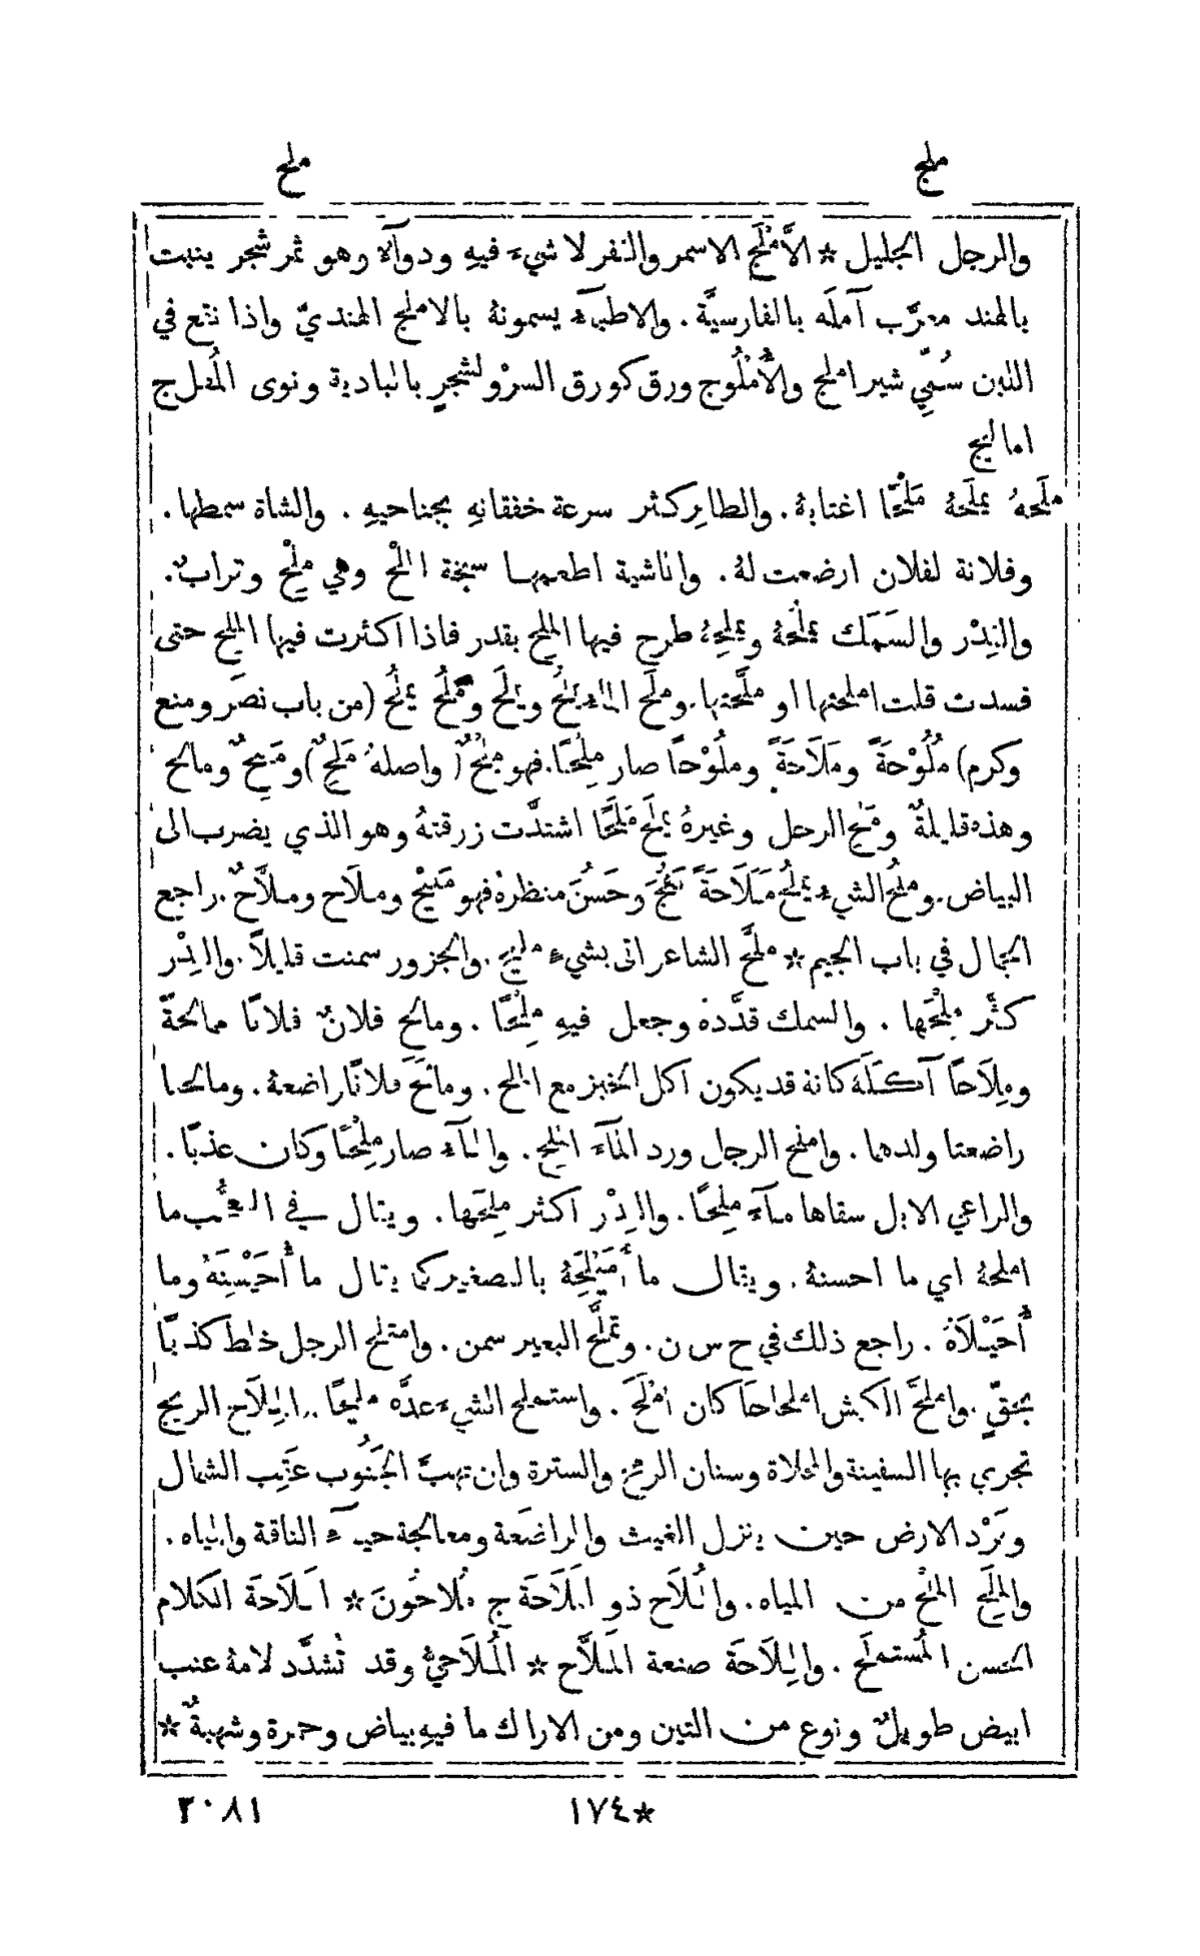 ملج ملح
والرجل الجليل * الأَمْلَج الاسمر والقفر لا شيءَ فيهِ ودوآءٌ وهو ثمر شجر ينبت
بالهند معرَّب آملَه بالفارسيَّة. والاطبآء يسمونهُ بالاملج الهنديّ واذا نقع في
اللبن سُمِّي شير املج والأُمْلُوج ورق كورق السرْو لشجرٍ بالبادية ونوى المُقل ج
اماليج
ملَحهُ يملَحهُ مَلْحًا اغتابهُ. والطائر كثر سرعة خفقانهِ بجناحيهِ. والشاة سمطها.
وفلانة لفلان ارضعت لهُ. والماشية اطعمها سبخة الملْح وهي مِلْح وتراب.
والقِدْر والسَمَك يملَحهُ ويملِحهُ طرح فيها الملح بقدر فاذا اكثرت فيها الملح حتى
فسدت قلت املحتها او ملَّحتها. وملَح المآء يملُح ويملَح وملُح يملُح (من باب نصَر ومنع
وكرم) مُلُوْحةً ومَلَاحَةً وملُوْحًا صار مِلْحًا. فهو مِلْحٌ (واصلهُ مَلِحٌ) ومَلِيحٌ ومالح
وهذه قليلةٌ ومَلِح الرجل وغيرهُ يملَح مَلَحًا اشتدَّت زرقتهُ وهو الذي يضرب الى
البياض. وملُح الشيء يملُح مَلَاحَةً بَهُجَ وحَسُنَ منظرهُ فهو مَلِيْح وملَاح وملَّاحٌ. راجع
الجمال في باب الجيم * ملَّح الشاعر اتى بشيءٍ مليح. والجزور سمنت قليلاً. والقِدْر
كثَّر مِلْحَها. والسمك قدَّدهُ وجعل فيهِ مِلْحًا. ومالح فلانٌ فلانًا ممالحةً
ومِلَاحًا آكَلَهُ كانهُ قد يكون آكل الخبز مع الملح. ومالَحَ فلانًا راضعهُ. ومالحا
راضعتا ولدهما. واملح الرجل ورد المآء الملِح. والمآء صار مِلْحًا وكان عذبًا.
والراعي الابل سقاها مآءً مِلْحًا. والقِدْر اكثر مِلحَها. ويقال في التعجُّب ما
املحهُ اي ما احسنهُ. ويقال ما أُمَيْلِحَهُ بالتصغير كما يقال ما أُحَيْسِنَهُ وما
أُحَيْلَاهُ. راجع ذلك في ح س ن. وتملَّح البعير سمن. وامتلح الرجل خلط كذبًا
بحقٍّ. واملحَّ الكبش املحاحًا كان امْلَحَ. واستملح الشيء عدَّهُ مليحًا.. المِلَاح الريح
تجري بها السفينة والمخلاة وسنان الرمح والسترة وان تهبَّ الجَنُوب عَقِيب الشمال
وبَرْد الارض حين ينزل الغيث والمراضَعة ومعالجة حيآء الناقة والمياه.
والمَلِيح الملْح من المياه. والمُلَاح ذو المَلَاحَة ج مُلَاحُونَ * المَلَاحَة الكلام
الحسن المُستملَح. والمِلَاحَة صنعة المَلَّاح * المُلَاحِيُّ وقد تُشدَّد لامهُ عنب
ابيض طويلٌ ونوع من التين ومن الاراك ما فيهِ بياض وحمرة وشهبةٌ *
*١٧٤ ٢٠٨١